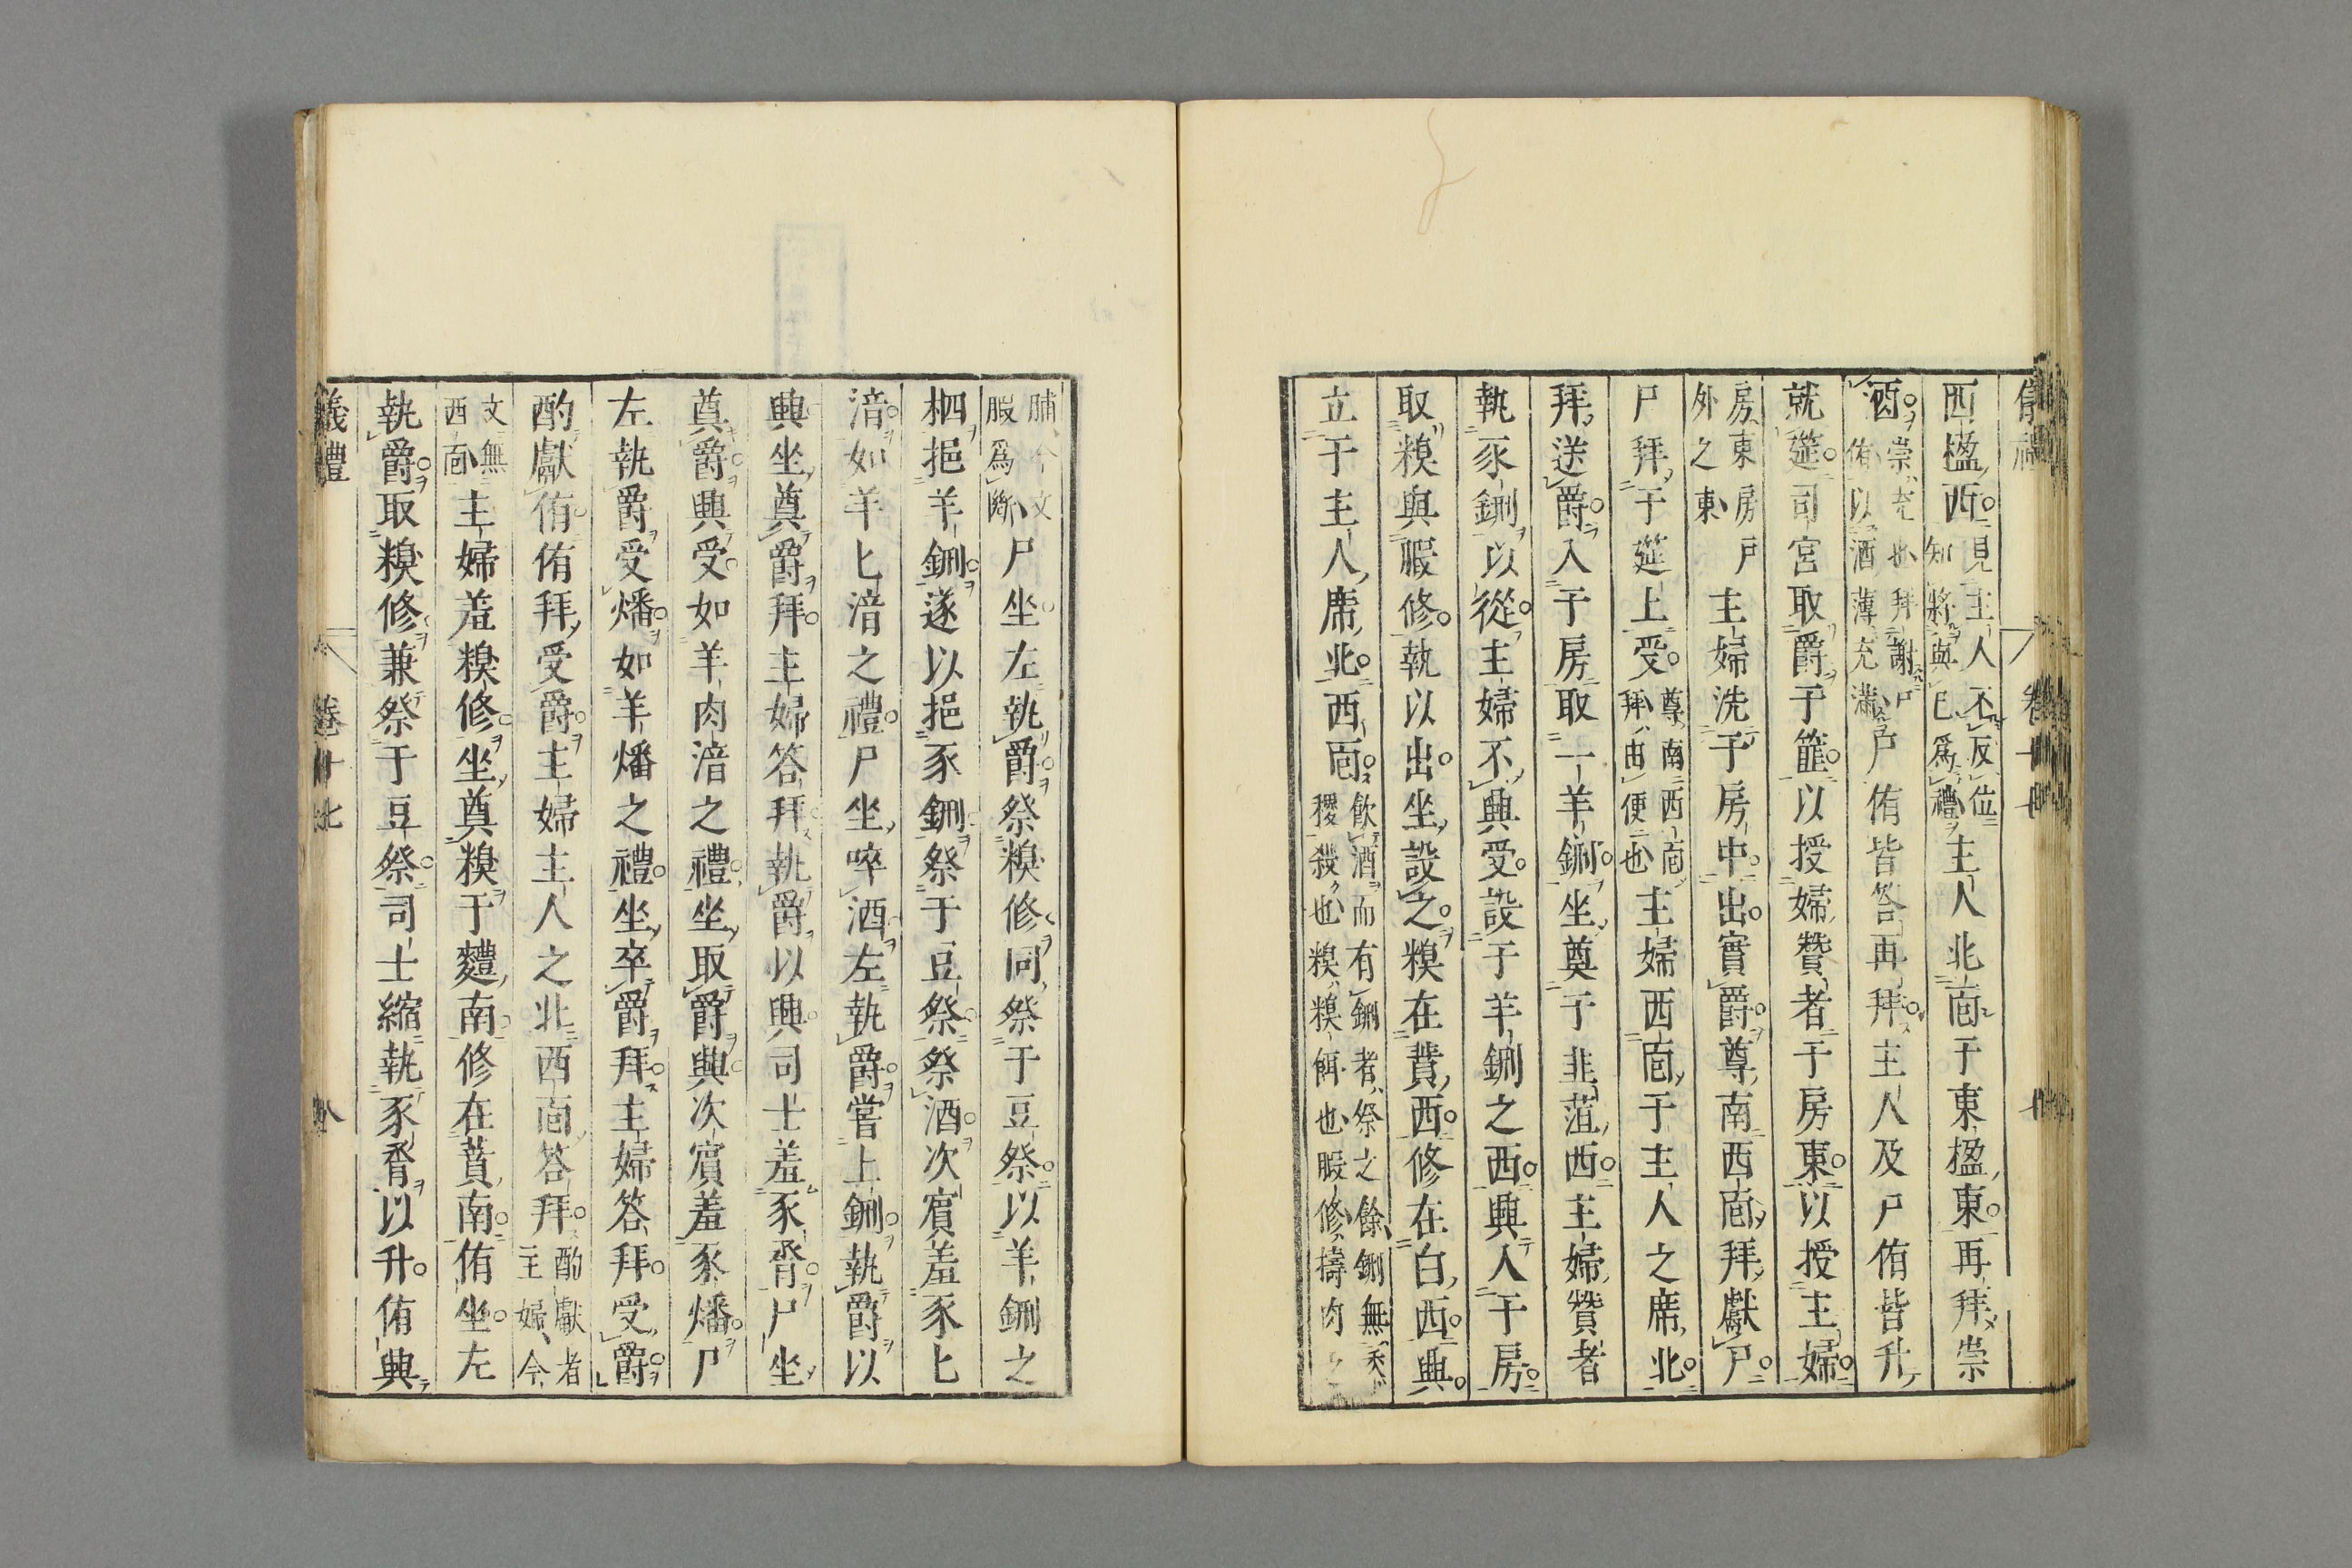 西楹西見主人不反位知將與已爲禮主人北面于東楹東再拜崇
酒崇充也拜謝尸侑以酒薄充滿尸侑皆答再拜主人及尸侑皆升
就筵司宮取爵于篚以授婦贊者于房東以授主婦
房東房戶外之東主婦洗于房中出實爵尊南西面拜獻尸
尸拜于筵上受尊南西面拜由便也主婦西面于主人之席北
拜送爵入于房取一羊鉶坐奠于韭菹西主婦贊者
執豕鉶以從主婦不興受設于羊鉶之西興入于房
取糗與腶修執以出坐設之糗在蕡西修在白西興
立于主人席北西面飲酒而有鉶者祭之餘鉶無黍稷殺也糗糗餌也腶修擣肉之
脯今文腶爲斷尸坐左執爵祭糗修同祭于豆祭以羊鉶之
柶挹羊鉶遂以挹豕鉶祭于豆祭祭酒次賓羞豕匕
湆如羊匕湆之禮尸坐啐酒左執爵嘗上鉶執爵以
興坐奠爵拜主婦答拜執爵以興司士羞豕脀尸坐
奠爵興受如羊肉湆之禮坐取爵興次賓羞豕燔尸
左執爵受燔如羊燔之禮坐卒爵拜主婦答拜受爵
酌獻侑侑拜受爵主婦主人之北西面答拜酌獻者主婦今
文無西面主婦羞糗修坐奠糗于麷南修在蕡南侑坐左
執爵取糗修兼祭于豆祭司士縮執豕脀以升侑興
儀禮 卷十七 八